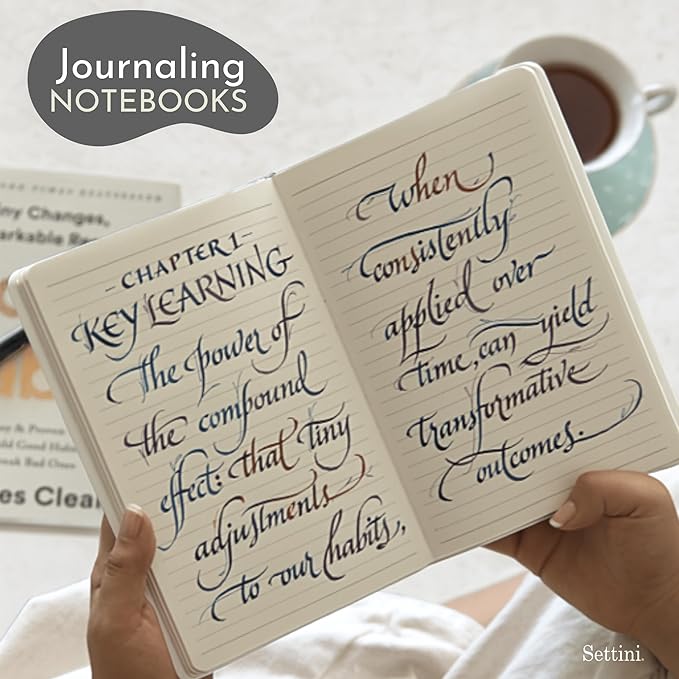 Journaling
NOTEBOOKS
iny Changes,
arkable Re
es Clear
- CHAPTER 1 -
KEY LEARNING
The power of
the compound
effect: that tiny
adjustments
to our habits,
When
consistently
applied over
time, can yield
transformative
outcomes.
Settini.